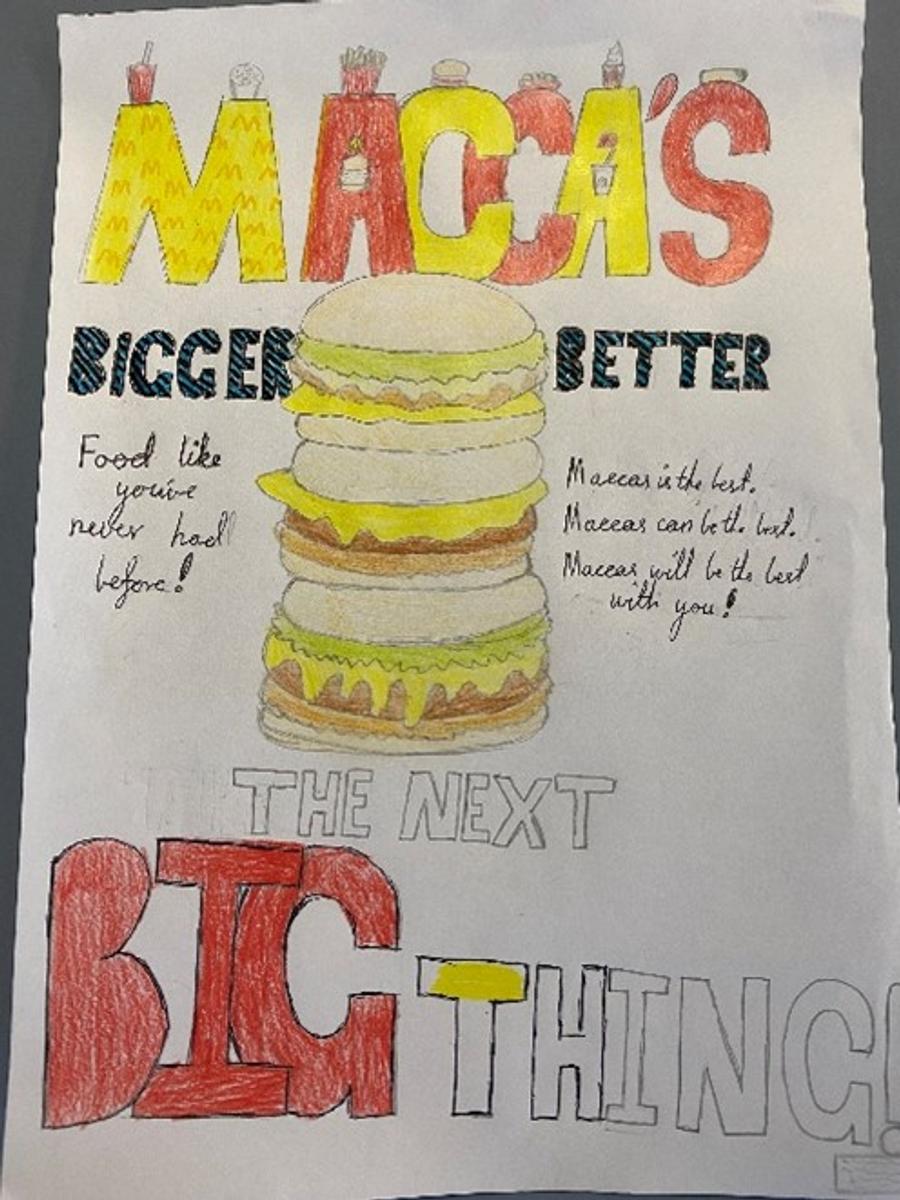 MACCA'S
BIGGER BETTER
Food like
you've
never had
before!
Maccas is the best.
Maccas can be the best.
Maccas will be the best
with you!
THE NEXT
BIG THING!